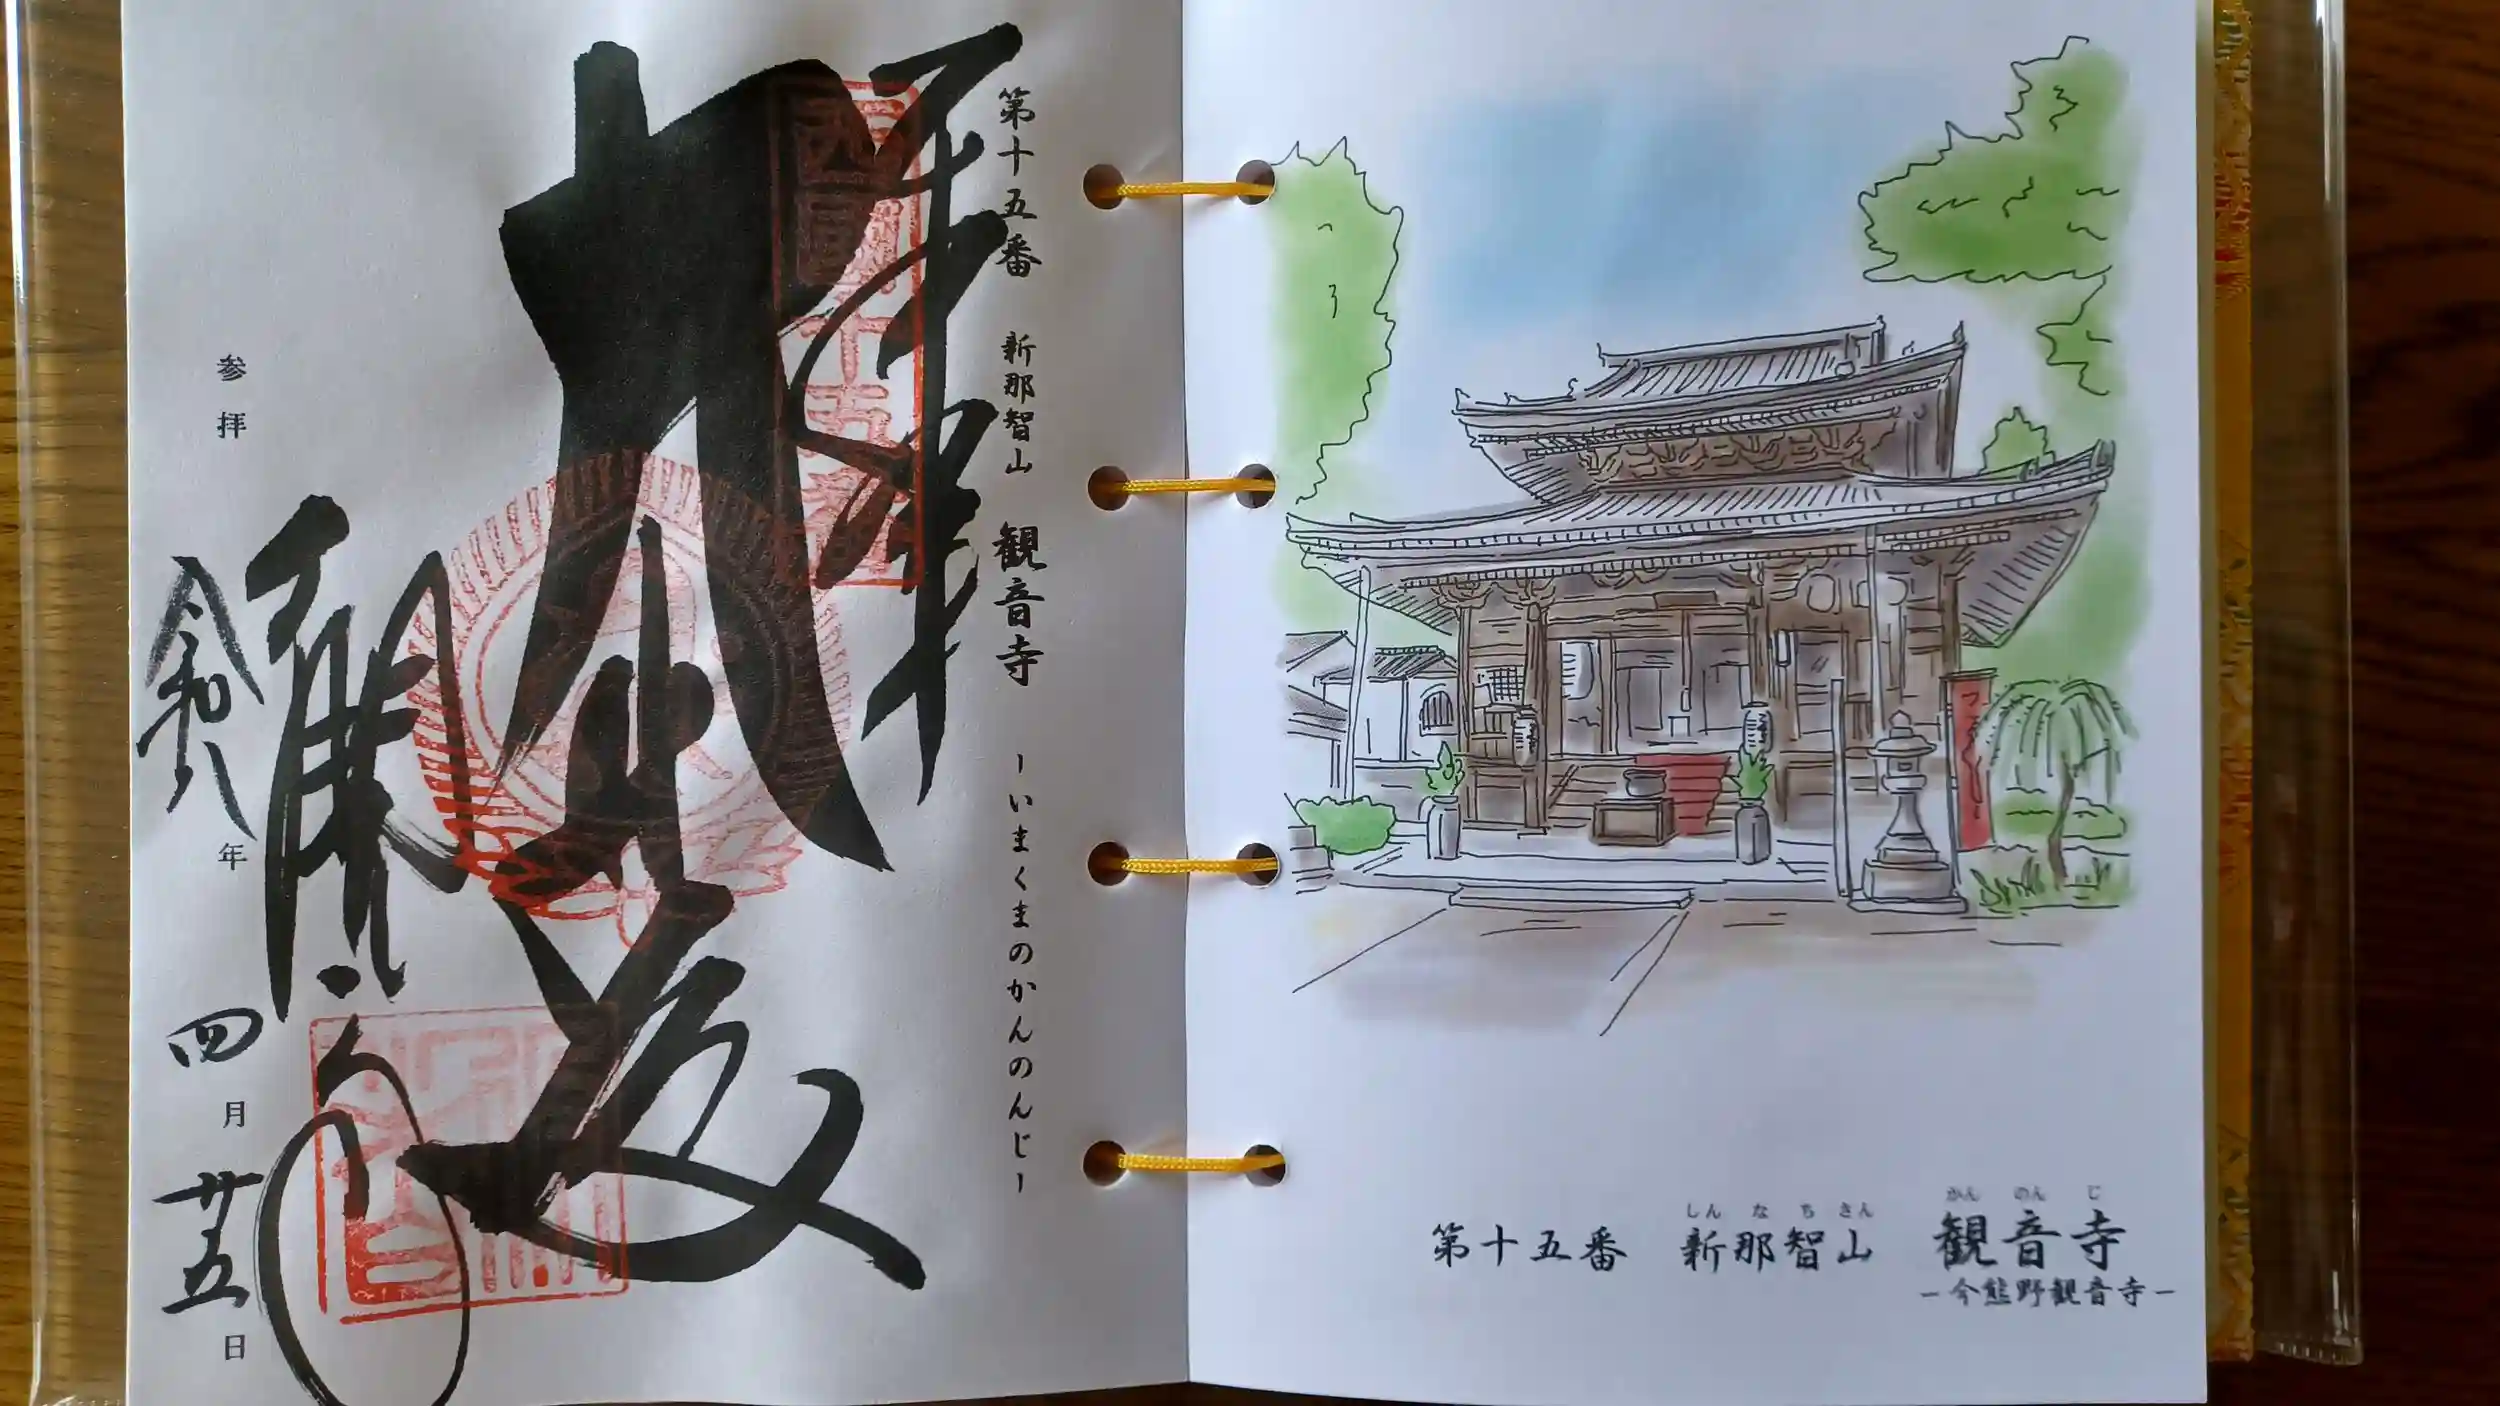 第十五番 新那智山 観音寺 -いまくまのかんのんじ-
奉拝
大悲殿
参拝 令和八年 四月廿五日
しんなちさん かんのんじ
第十五番 新那智山 観音寺
-今熊野観音寺-